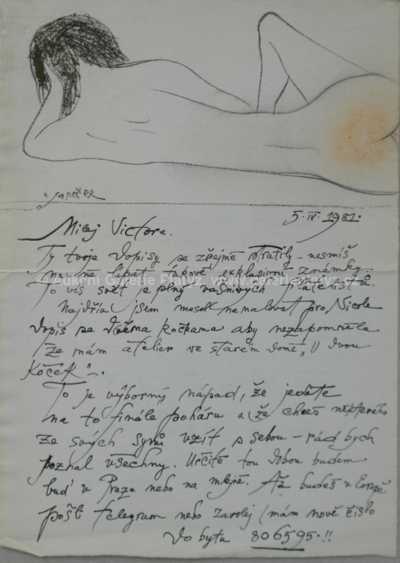 5. IV 1981.
Milej Victore.
Ty tvoje dopisy se zřejmě ztratily – nesmíš
na ně lepit takové exklusivní známky
To víš svět je plný vášnivých
Nejdřív jsem musel namalovat pro Nicole
dopis se dvěma kočkama aby nezapomněla
že mám atelier ve starém domě „U dvou
koček“.
To je výborný nápad, že jedete
na to finále poháru a že chceš některého
ze svých synů vzít s sebou – rád bych
poznal všechny. Určitě tou dobou budem
buď v Praze nebo na mlýně. Až budeš v Evropě
pošli telegram nebo zavolej (mám nové číslo
do bytu 806595.!!